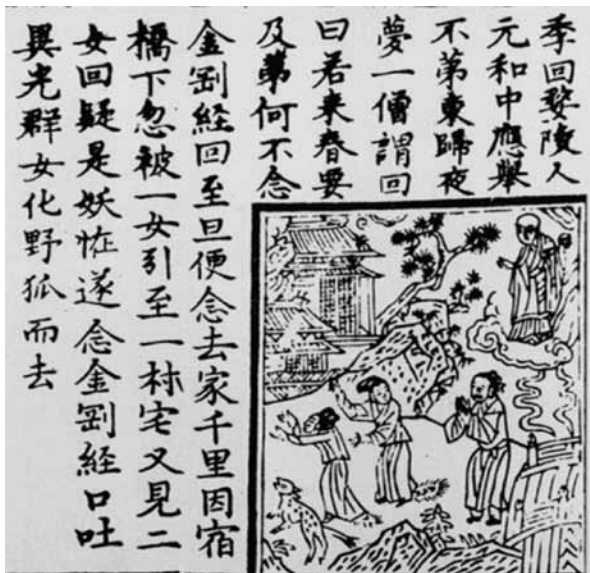 季回婺陵人
元和中應舉
不第東歸夜
夢一僧謂回
曰若来春要
及第何不念
金剛経回至旦便念去家千里因宿
橋下忽被一女引至一村宅又見二
女回疑是妖恠遂念金剛経口吐
異光群女化野狐而去